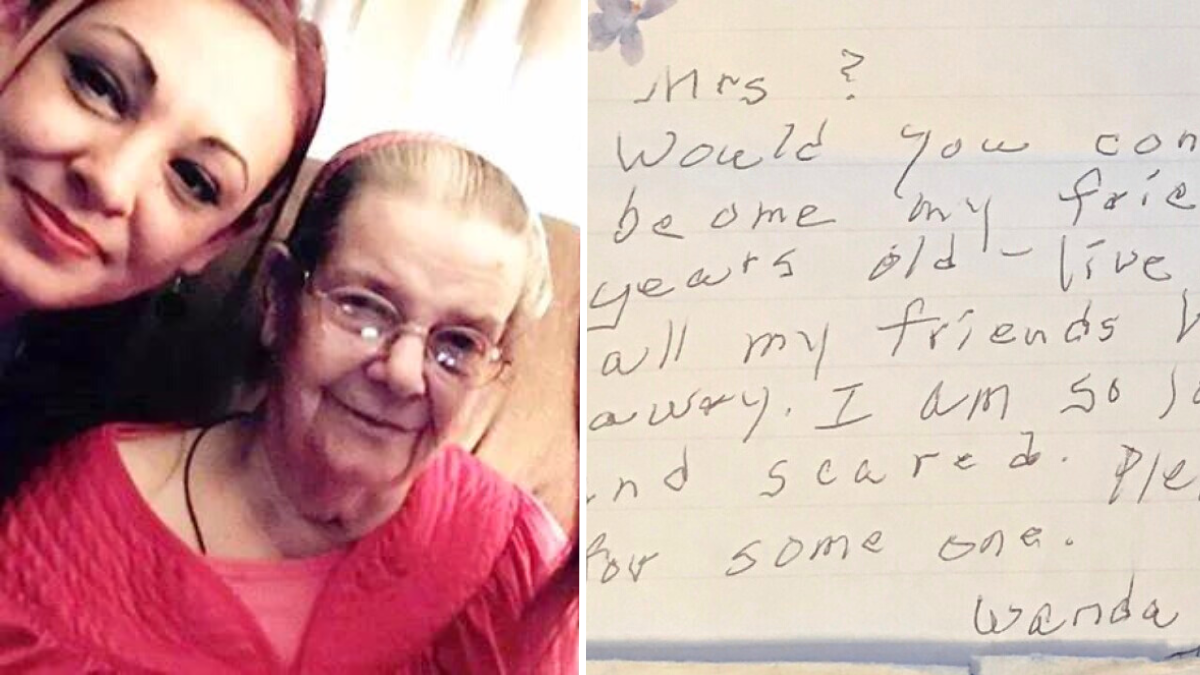 Mrs ?
Would you con
be ome my frie
years old - live
all my friends
away. I am so
nd scared. Ple
for some one.
Wanda